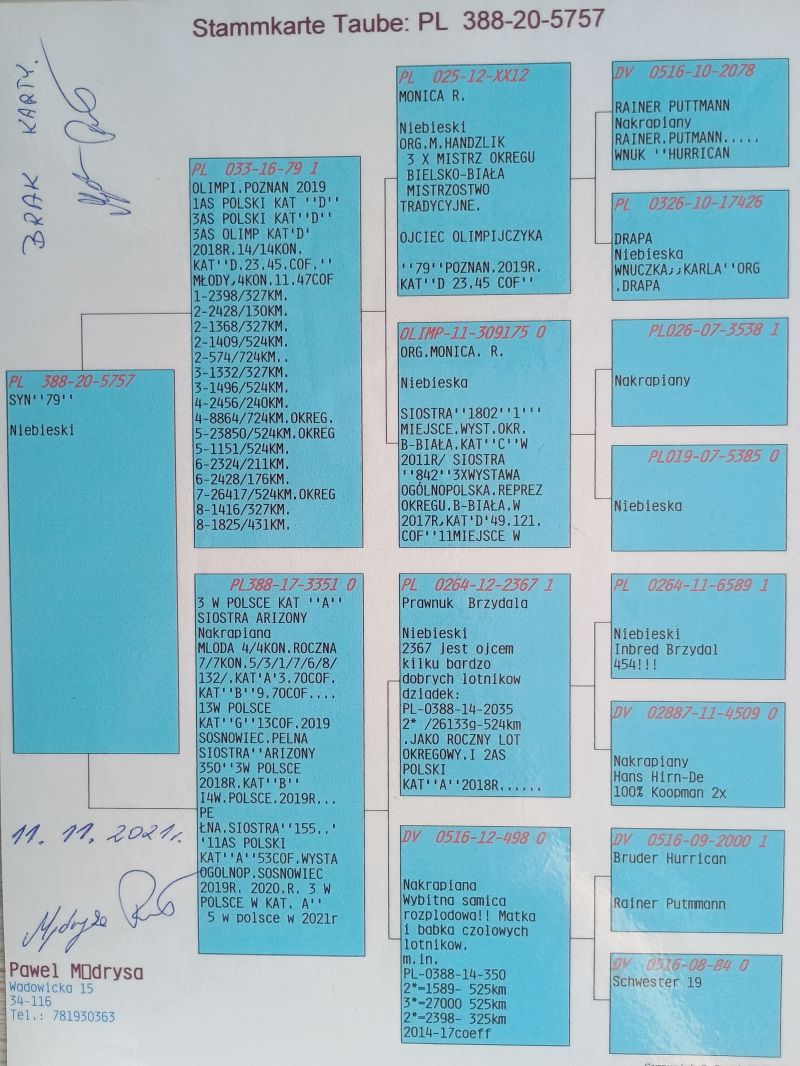 Stammkarte Taube: PL 388-20-5757
BRAK KARTY.
PL 388-20-5757
SYN''79''
Niebieski
PL 033-16-79 1
OLIMPI.POZNAN 2019
1AS POLSKI KAT ''D''
3AS POLSKI KAT''D''
3AS OLIMP KAT'D'
2018R.14/14KON.
KAT''D.23.45.COF.''
MŁODY,4KON.11.47COF
1-2398/327KM.
2-2428/130KM.
2-1368/327KM.
2-1409/524KM.
2-574/724KM..
3-1332/327KM.
3-1496/524KM.
4-2456/240KM.
4-8864/724KM.OKREG.
5-23850/524KM.OKREG
5-1151/524KM.
6-2324/211KM.
6-2428/176KM.
7-26417/524KM.OKREG
8-1416/327KM.
8-1825/431KM.
PL388-17-3351 0
3 W POLSCE KAT ''A''
SIOSTRA ARIZONY
Nakrapiana
MLODA 4/4KON.ROCZNA
7/7KON.5/3/1/7/6/8/
132/.KAT'A'3.70COF.
KAT''B''9.70COF....
13W POLSCE
KAT''G''13COF.2019
SOSNOWIEC.PELNA
SIOSTRA''ARIZONY
350''3W POLSCE
2018R.KAT''B''
I4W.POLSCE.2019R...
PE
ŁNA.SIOSTRA''155,.'
'11AS POLSKI
KAT''A''53COF.WYSTA
OGOLNOP.SOSNOWIEC
2019R. 2020.R. 3 W
POLSCE W KAT. A''
5 w polsce w 2021r
PL 025-12-XX12
MONICA R.
Niebieski
ORG.M.HANDZLIK
3 X MISTRZ OKREGU
BIELSKO-BIAŁA
MISTRZOSTWO
TRADYCYJNE.
OJCIEC OLIMPIJCZYKA
''79''POZNAN.2019R.
KAT''D 23,45 COF''
OLIMP-11-309175 0
ORG.MONICA. R.
Niebieska
SIOSTRA''1802''1'''
MIEJSCE.WYST.OKR.
B-BIAŁA.KAT''C''W
2011R/ SIOSTRA
''842''3XWYSTAWA
OGÓLNOPOLSKA.REPREZ
OKREGU.B-BIAŁA.W
2017R,KAT'D'49.121.
COF''11MIEJSCE W
PL 0264-12-2367 1
Prawnuk Brzydala
Niebieski
2367 jest ojcem
kilku bardzo
dobrych lotnikow
dziadek:
PL-0388-14-2035
2* /26133g-524km
.JAKO ROCZNY LOT
OKREGOWY.I 2AS
POLSKI
KAT''A''2018R......
DV 0516-12-498 0
Nakrapiana
Wybitna samica
rozplodowa!! Matka
i babka czolowych
lotnikow.
m.in.
PL-0388-14-350
2*=1589- 525km
3*=27000 525km
2*=2398- 325km
2014-17coeff
DV 0516-10-2078
RAINER PUTTMANN
Nakrapiany
RAINER.PUTMANN.....
WNUK ''HURRICAN
PL 0326-10-17426
DRAPA
Niebieska
WNUCZKA,,KARLA''ORG
.DRAPA
PL026-07-3538 1
Nakrapiany
PL019-07-5385 0
Niebieska
PL 0264-11-6589 1
Niebieski
Inbred Brzydal
454!!!
DV 02887-11-4509 0
Nakrapiany
Hans Hirn-De
100% Koopman 2x
DV 0516-09-2000 1
Bruder Hurrican
Rainer Putmmann
DV 0516-08-84 0
Schwester 19
11. 11. 2021r.
Pawel M□drysa
Wadowicka 15
34-116
Tel.: 781930363